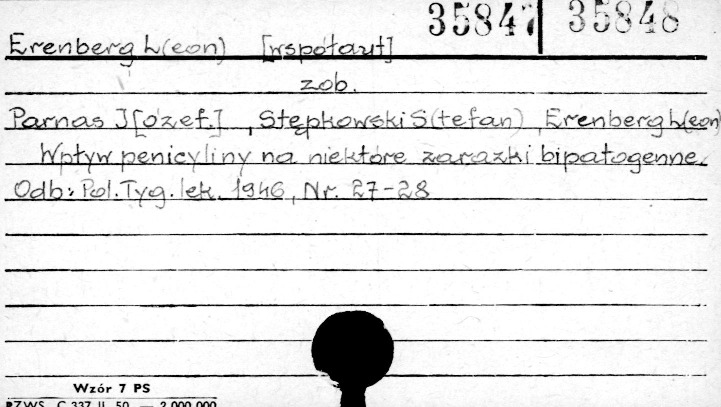 35847 35848
Erenberg L(eon) [współaut]
zob.
Parnas J[ózef.], Stępkowski S(tefan), Erenberg L(eon)
Wpływ penicyliny na niektóre zarazki bipatogenne.
Odb: Pol. Tyg. lek. 1946, Nr. 27-28
Wzór 7 PS
PZWS. C 337 II. 50. — 2.000.000